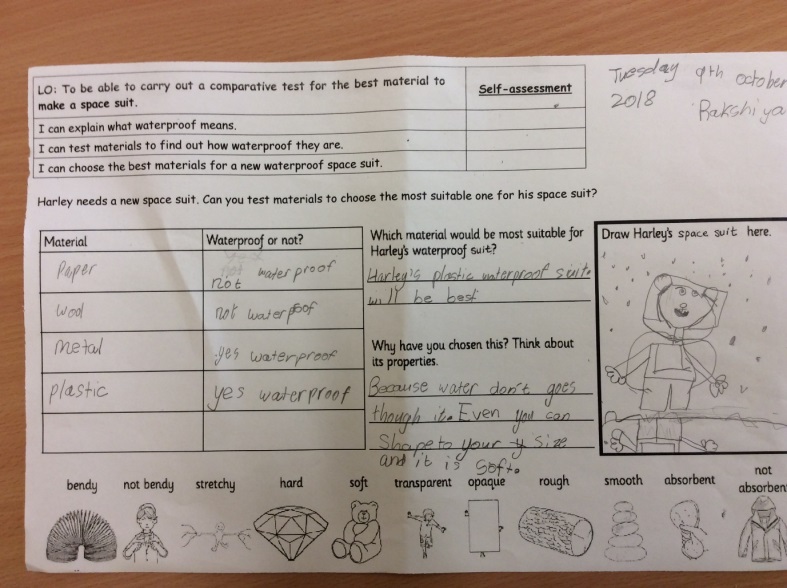 LO: To be able to carry out a comparative test for the best material to
make a space suit.
Self-assessment
I can explain what waterproof means.
I can test materials to find out how waterproof they are.
I can choose the best materials for a new waterproof space suit.
Tuesday 9th october
2018
Rakshiya
Harley needs a new space suit. Can you test materials to choose the most suitable one for his space suit?
Material
Waterproof or not?
Paper
not waterproof
wool
not waterproof
metal
yes waterproof
plastic
yes waterproof
Which material would be most suitable for
Harley's waterproof suit?
Harley's plastic waterproof suit
will be best
Why have you chosen this? Think about
its properties.
Because water don't goes
though it. Even you can
Shape to your size
and it is soft.
Draw Harley's space suit here.
bendy
not bendy
stretchy
hard
soft
transparent
opaque
rough
smooth
absorbent
not
absorbent